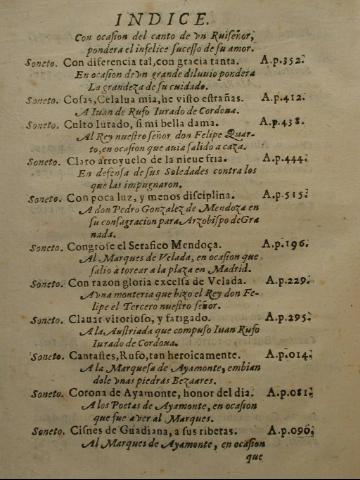 INDICE.
Con ocasion del canto de vn Ruiseñor,
pondera el infelice sucesso de su amor.
Soneto. Con diferencia tal, con gracia tanta. A.p.352.
En ocasion de vn grande diluuio pondera
La grandeza de su cuidado.
Soneto. Cosas, Celalua mia, he visto estrañas. A.p.412.
A Iuan de Rufo Iurado de Cordoua.
Soneto. Culto Iurado, si mi bella dama. A.p.438.
Al Rey nuestro señor don Felipe Quar-
to, en ocasion que auia salido a caza.
Soneto. Claro arroyuelo de la nieue fria. A.p.444.
En defensa de sus Soledades contra los
que las impugnaron.
Soneto. Con poca luz, y menos disciplina. A.p.515.
A don Pedro Gonzalez de Mendoza en
su consagracion para Arzobispo de Gra
nada.
Soneto. Congrose el Serafico Mendoça. A.p.196.
Al Marques de Velada, en ocasion que
salio à torear a la plaza en Madrid.
Soneto. Con razon gloria excelsa de Velada. A.p.229.
A vna monteria que hizo el Rey don Fe-
lipe el Tercero nuestro señor.
Soneto. Clauar vitorioso, y fatigado. A.p.295.
A la Austriada que compuso Iuan Rufo
Iurado de Cordoua.
Soneto. Cantastes, Rufo, tan heroicamente. A.p.014.
A la Marquesa de Ayamonte, embian
dole vnas piedras Bezaares.
Soneto. Corona de Ayamonte, honor del dia. A.p.081.
A los Poetas de Ayamonte, en ocasion
que fue a ver al Marques.
Soneto. Cisnes de Guadiana, a sus riberas. A.p.096.
Al Marques de Ayamonte, en ocasion
que